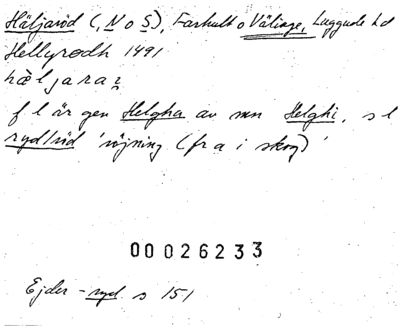 Häljaröd (, N o S), Farhult o Välinge, Luggude hd
Hellyrodh 1491
hæljaraz
f l är gen Helgha av mn Helghi, s l
ryd/röd 'röjning (fr a i skog)'
00026233
Ejder -ryd s 151